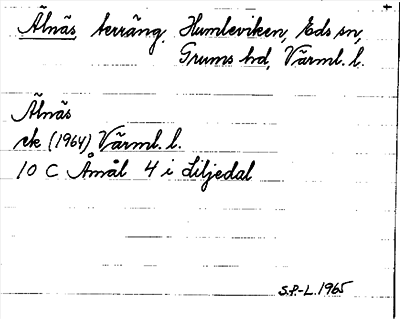 Älnäs, terräng, Humleviken, Eds sn,
Grums hd, Värml. l.
Älnäs
ek (1964) Värml. l.
10 C Åmål 4 i Liljedal
S.P.-L. 1965